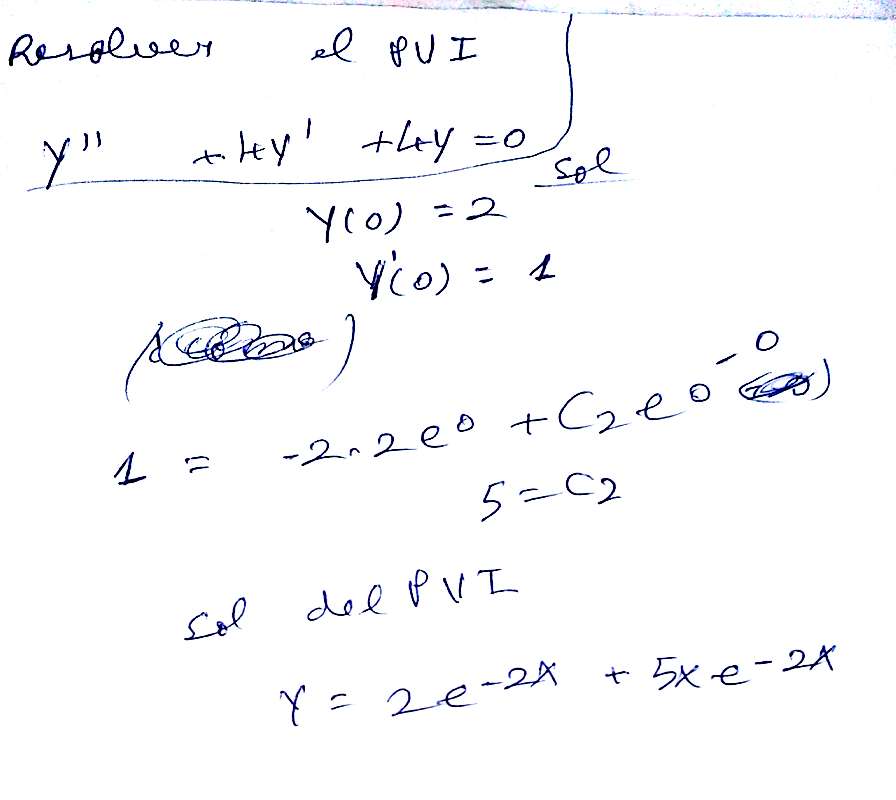 Resolver el PVI
y'' + 4y' + 4y = 0
Sol
y(0) = 2
y'(0) = 1
1 = -2·2e⁰ + C₂e⁰ - 0
5 = C₂
Sol del PVI
y = 2e⁻²ˣ + 5xe⁻²ˣ